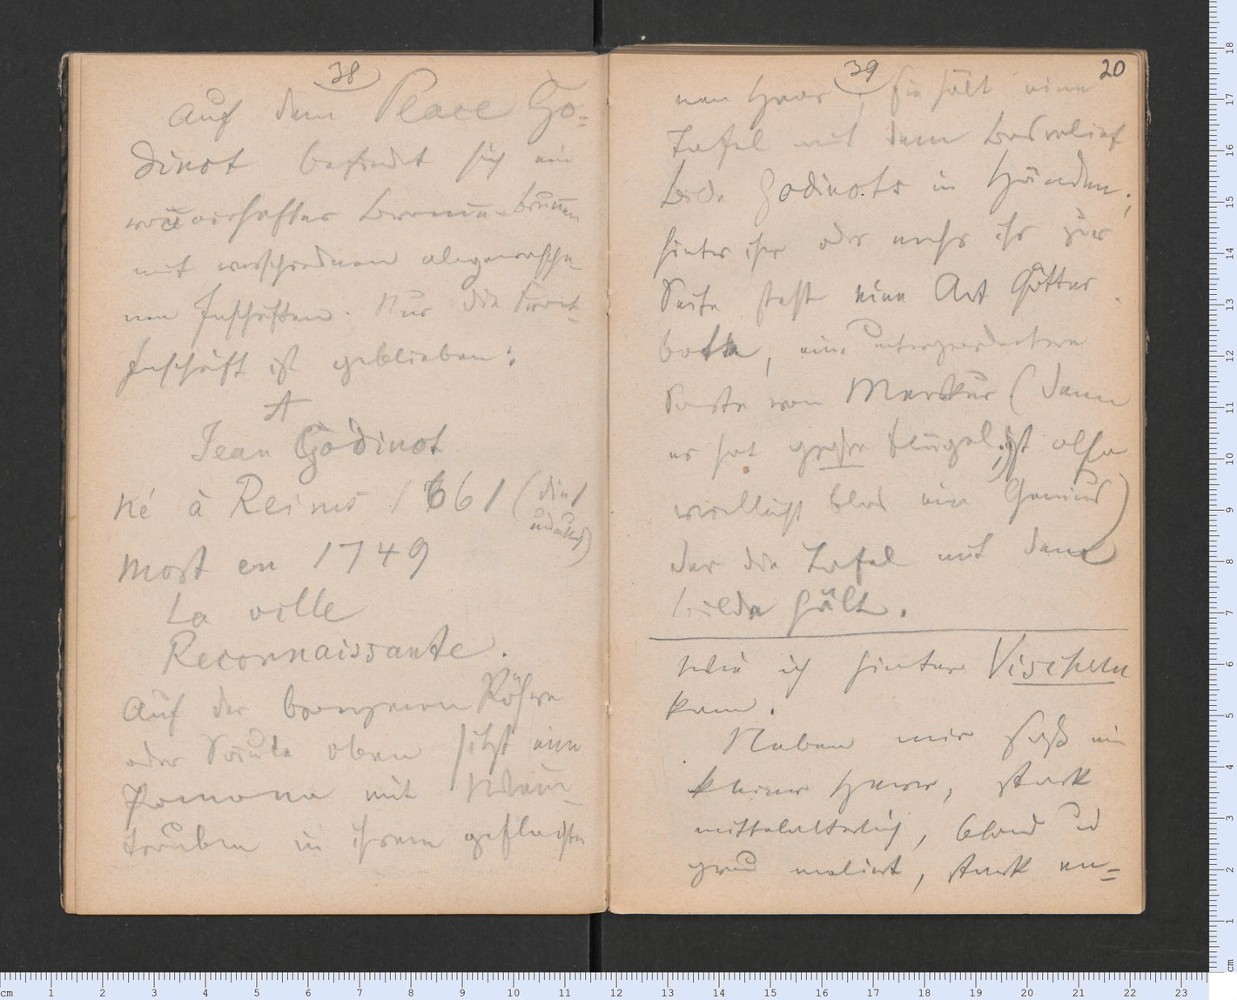 38
Auf dem Place Go-
dinot befindet sich ein
mit verschiednen abgewasche-
nen Inschriften. Nur die Front-
Inschrift ist geblieben:
A
Jean Godinot
Né à Reims 1661 (die 1
undeutlich)
Mort en 1749
La ville
Reconnaissante.
Auf der bronzenen Röhre
oder Säule oben sitzt eine
Pomona mit Wein-
trauben in ihrem geflochte-
39
20
nen Haar, sie hält eine
Tafel mit dem Basrelief
bilde Godinots in Händen;
hinter ihr oder mehr ihr zur
Seite steht eine Art Götter-
bote, eine untergeordnetere
Sorte von Merkur (denn
er hat große Flügel, ist also
vielleicht blos ein Genius)
der die Tafel mit dem
Bilde hält.
Wie ich hinter Vischern
kam.
Neben mir saß ein
kleiner Herr, stark
mittelalterlich, blond u
grau meliert, stark an-